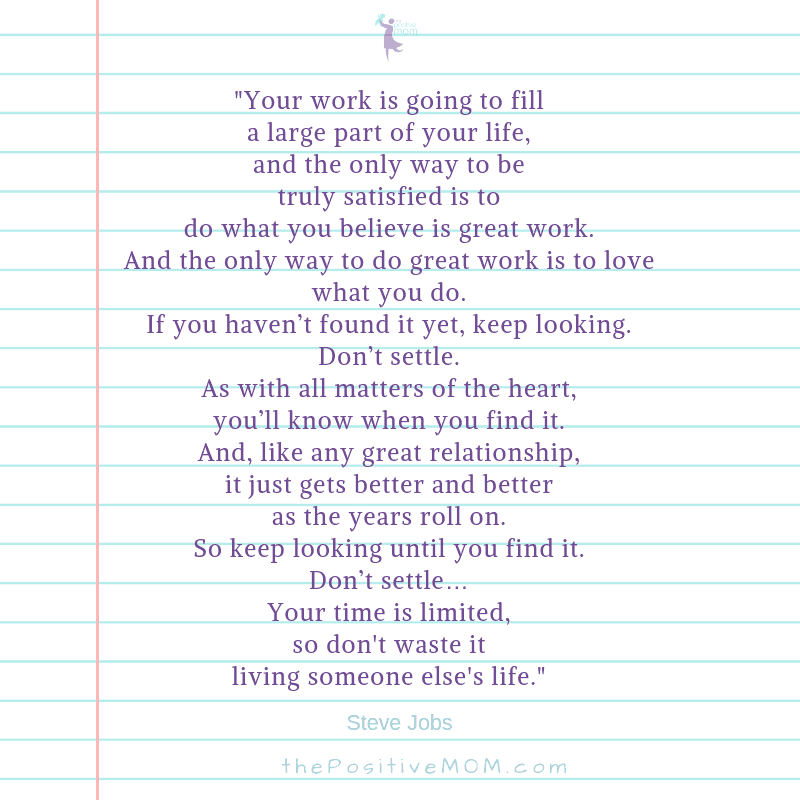 mom
"Your work is going to fill
a large part of your life,
and the only way to be
truly satisfied is to
do what you believe is great work.
And the only way to do great work is to love
what you do.
If you haven’t found it yet, keep looking.
Don’t settle.
As with all matters of the heart,
you’ll know when you find it.
And, like any great relationship,
it just gets better and better
as the years roll on.
So keep looking until you find it.
Don’t settle…
Your time is limited,
so don't waste it
living someone else's life."
Steve Jobs
thePositiveMOM.com